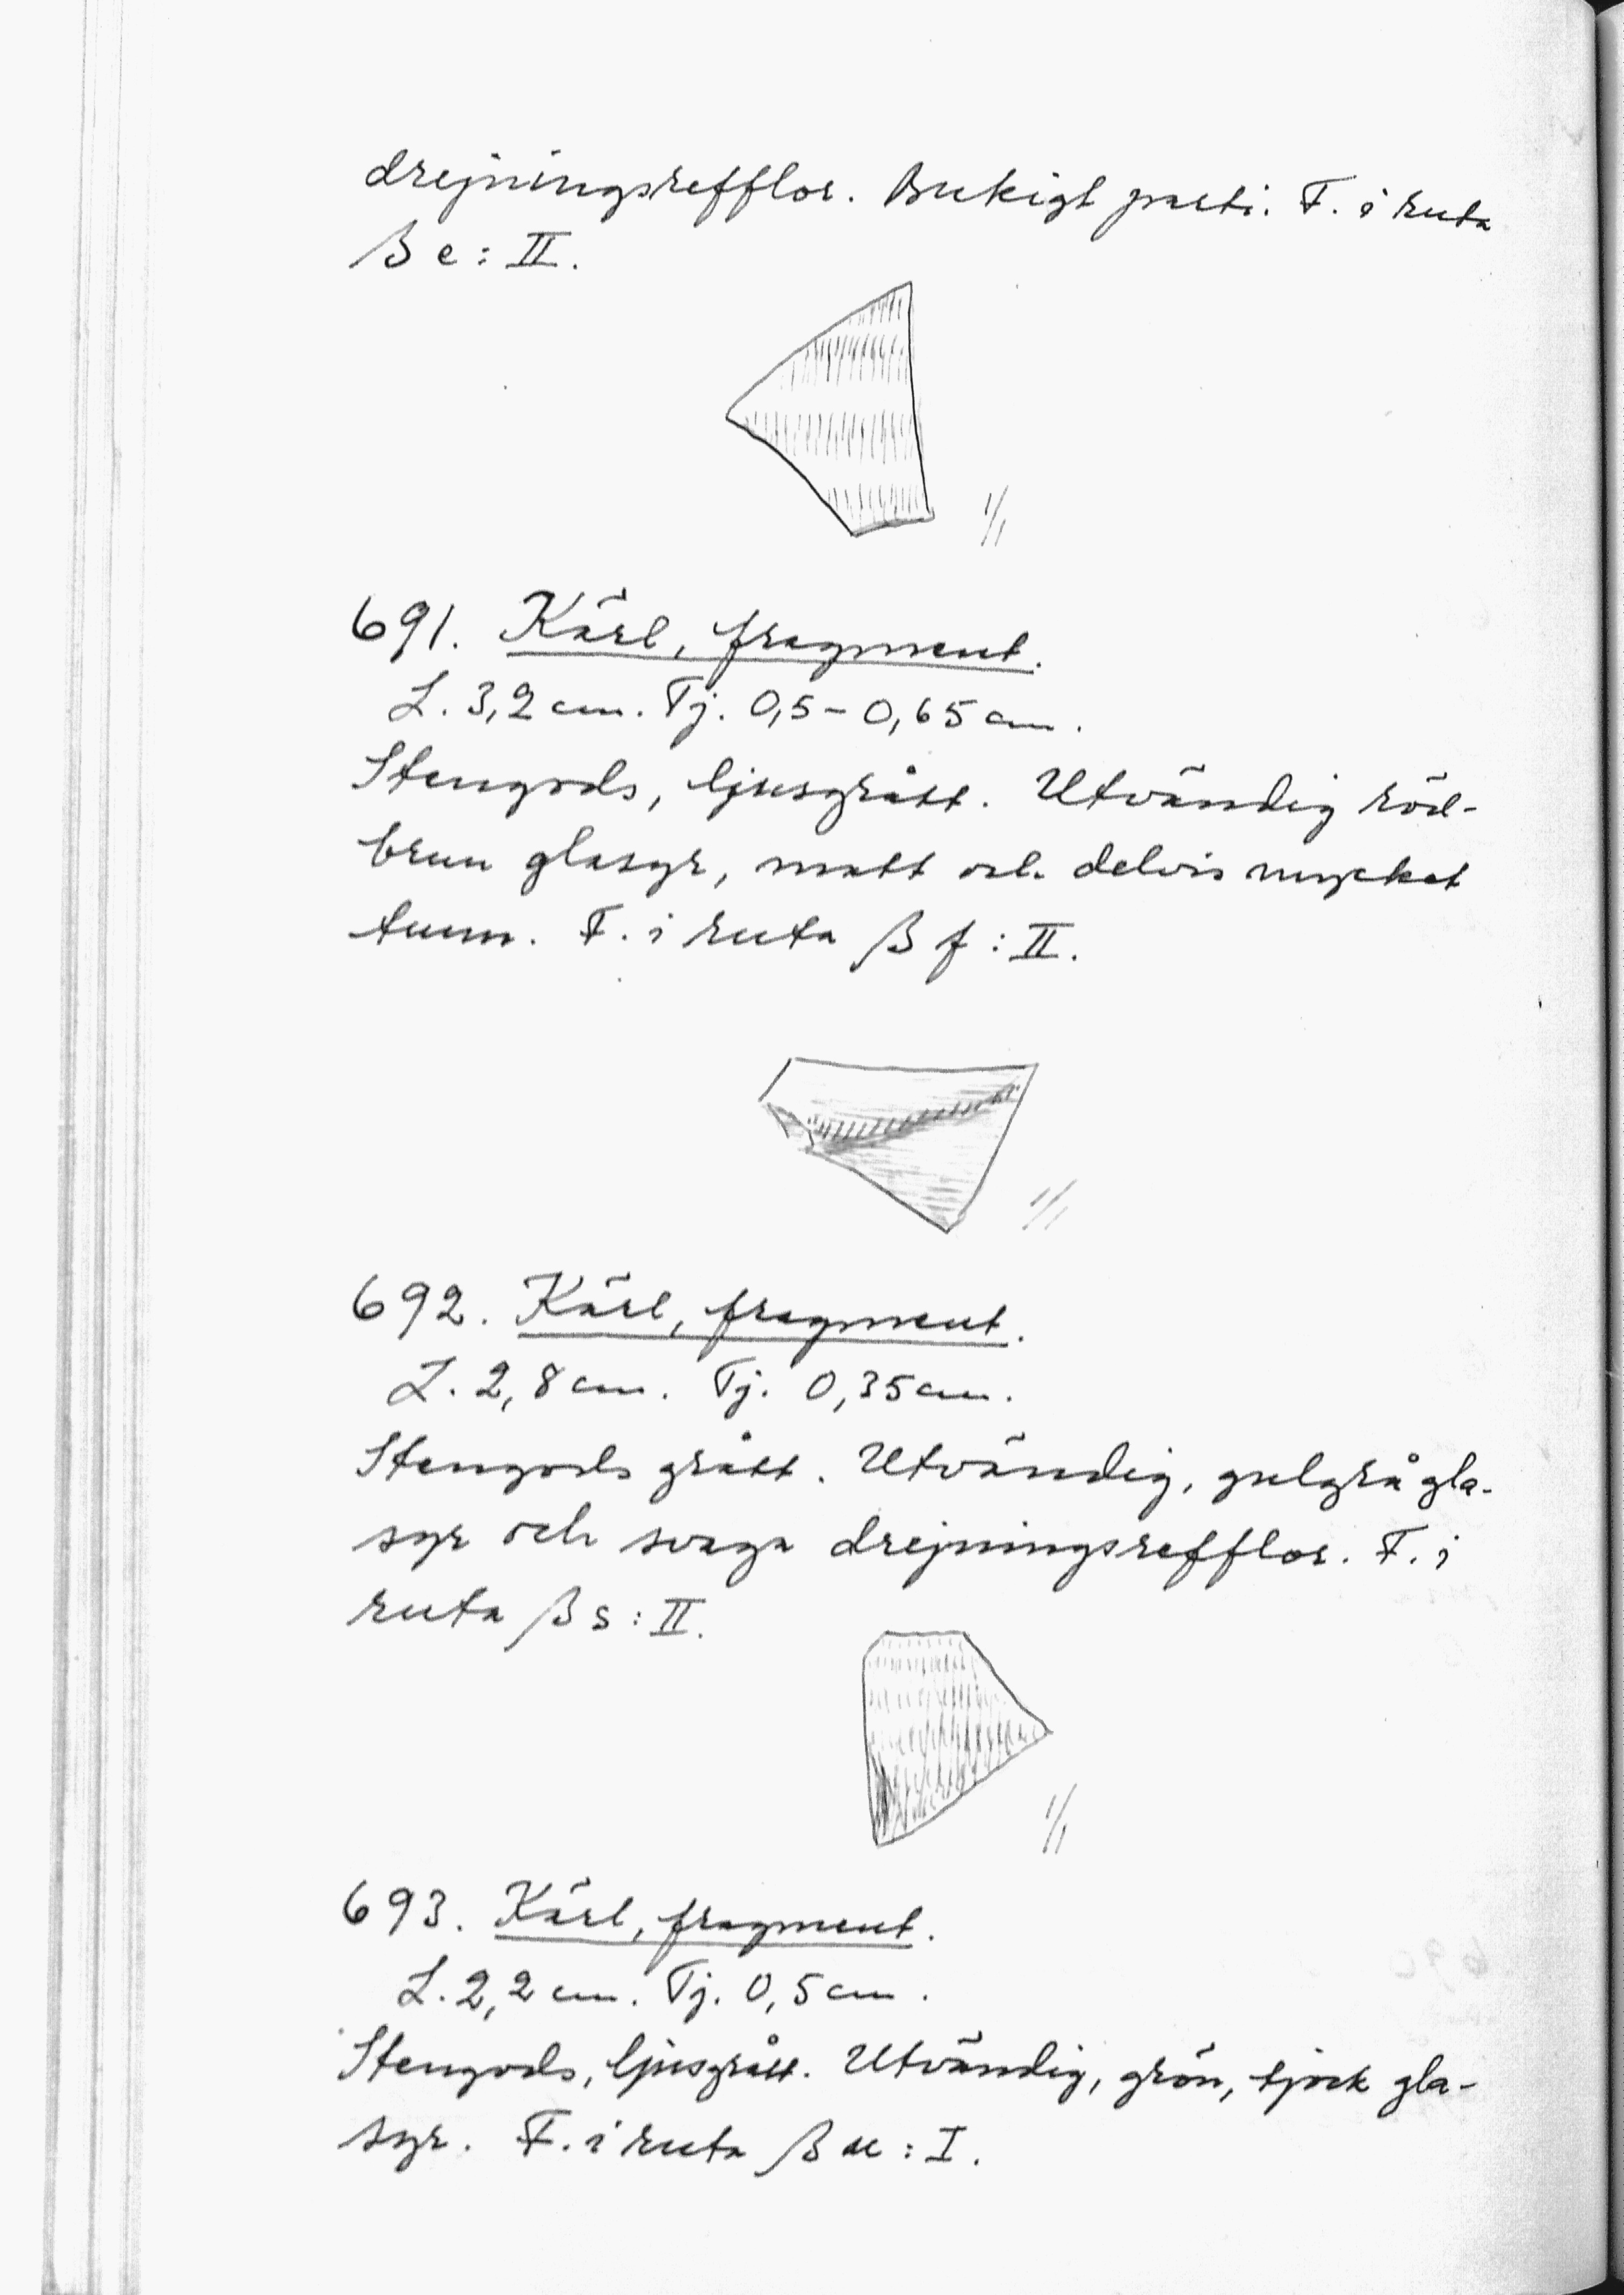 drejningsrefflor. Bukigt parti. F. i ruta
β e: II.
1/1
691. Kärl, fragment.
L. 3,2 cm. Tj. 0,5-0,65 cm.
Stengods, ljusgrått. Utvändig röd-
brun glasyr, matt och delvis mycket
tunn. F. i ruta β f: II.
1/1
692. Kärl, fragment.
L. 2,8 cm. Tj. 0,35 cm.
Stengods grått. Utvändig, gulgrå gla-
syr och svaga drejningsrefflor. F. i
ruta β s: II.
1/1
693. Kärl, fragment.
L. 2,2 cm. Tj. 0,5 cm.
Stengods, ljusgrått. Utvändig, grön, tjock gla-
syr. F. i ruta β æ: I.